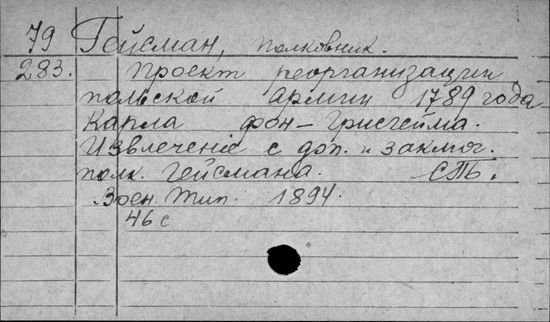 79 Гейсман, полковник.
283. Проект реорганизации
польской армии 1789 года
Карла фон-Грисгейма.
Извлеченіе с доп. и заключ.
полк. Гейсмана. СПб.
Воен. Тип. 1894.
46 с